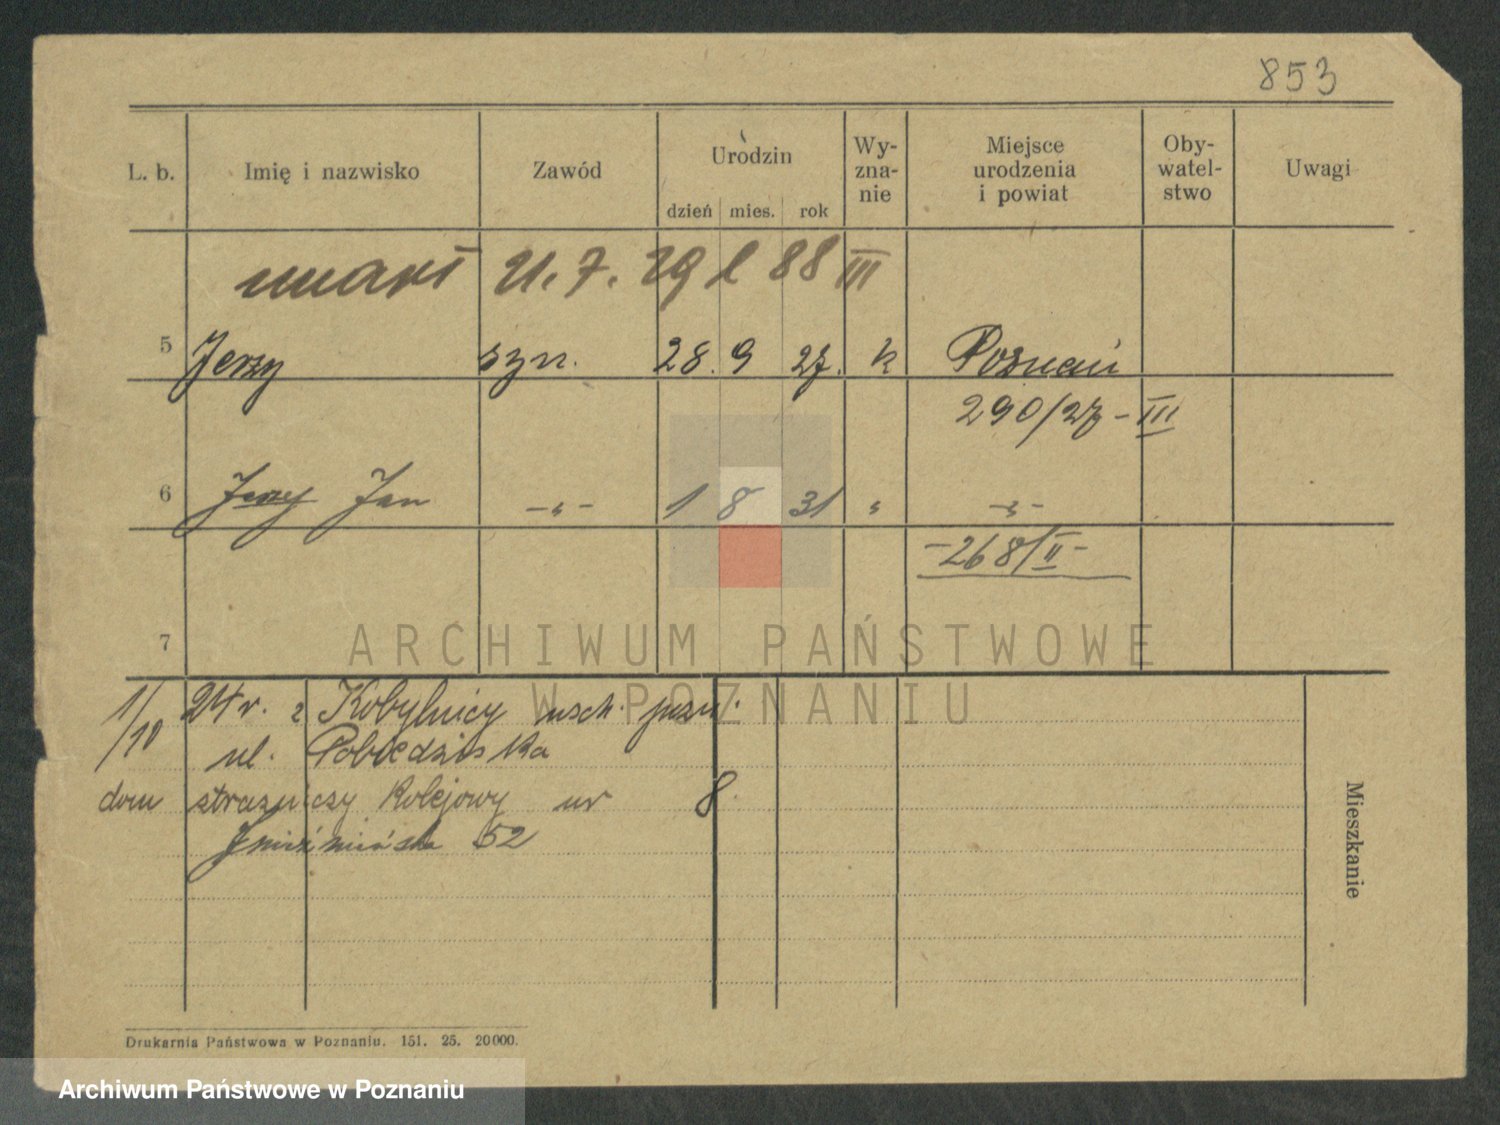 853
L. b. Imię i nazwisko Zawód Urodzin dzień mies. rok Wy-zna-nie Miejsce urodzenia i powiat Oby-watel-stwo Uwagi
umarł 21. 7. 29 l 88 III
5 Jerzy syn. 28. 9 27. k Poznań
290/27-III
6 Jerzy Jan -„- 1 8 31 „ -„-
-268/II-
7
ARCHIWUM PAŃSTWOWE
W POZNANIU
1/10 24 r. z Kobylnicy wsch.
ul. Pobiedziska
dom strażniczy kolejowy nr 8.
Gnieźnieńska 52
Mieszkanie
Drukarnia Państwowa w Poznaniu. 151. 25. 20000.
Archiwum Państwowe w Poznaniu